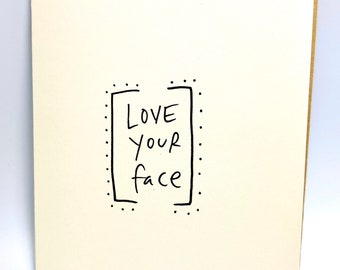 LOVE
YOUR
face